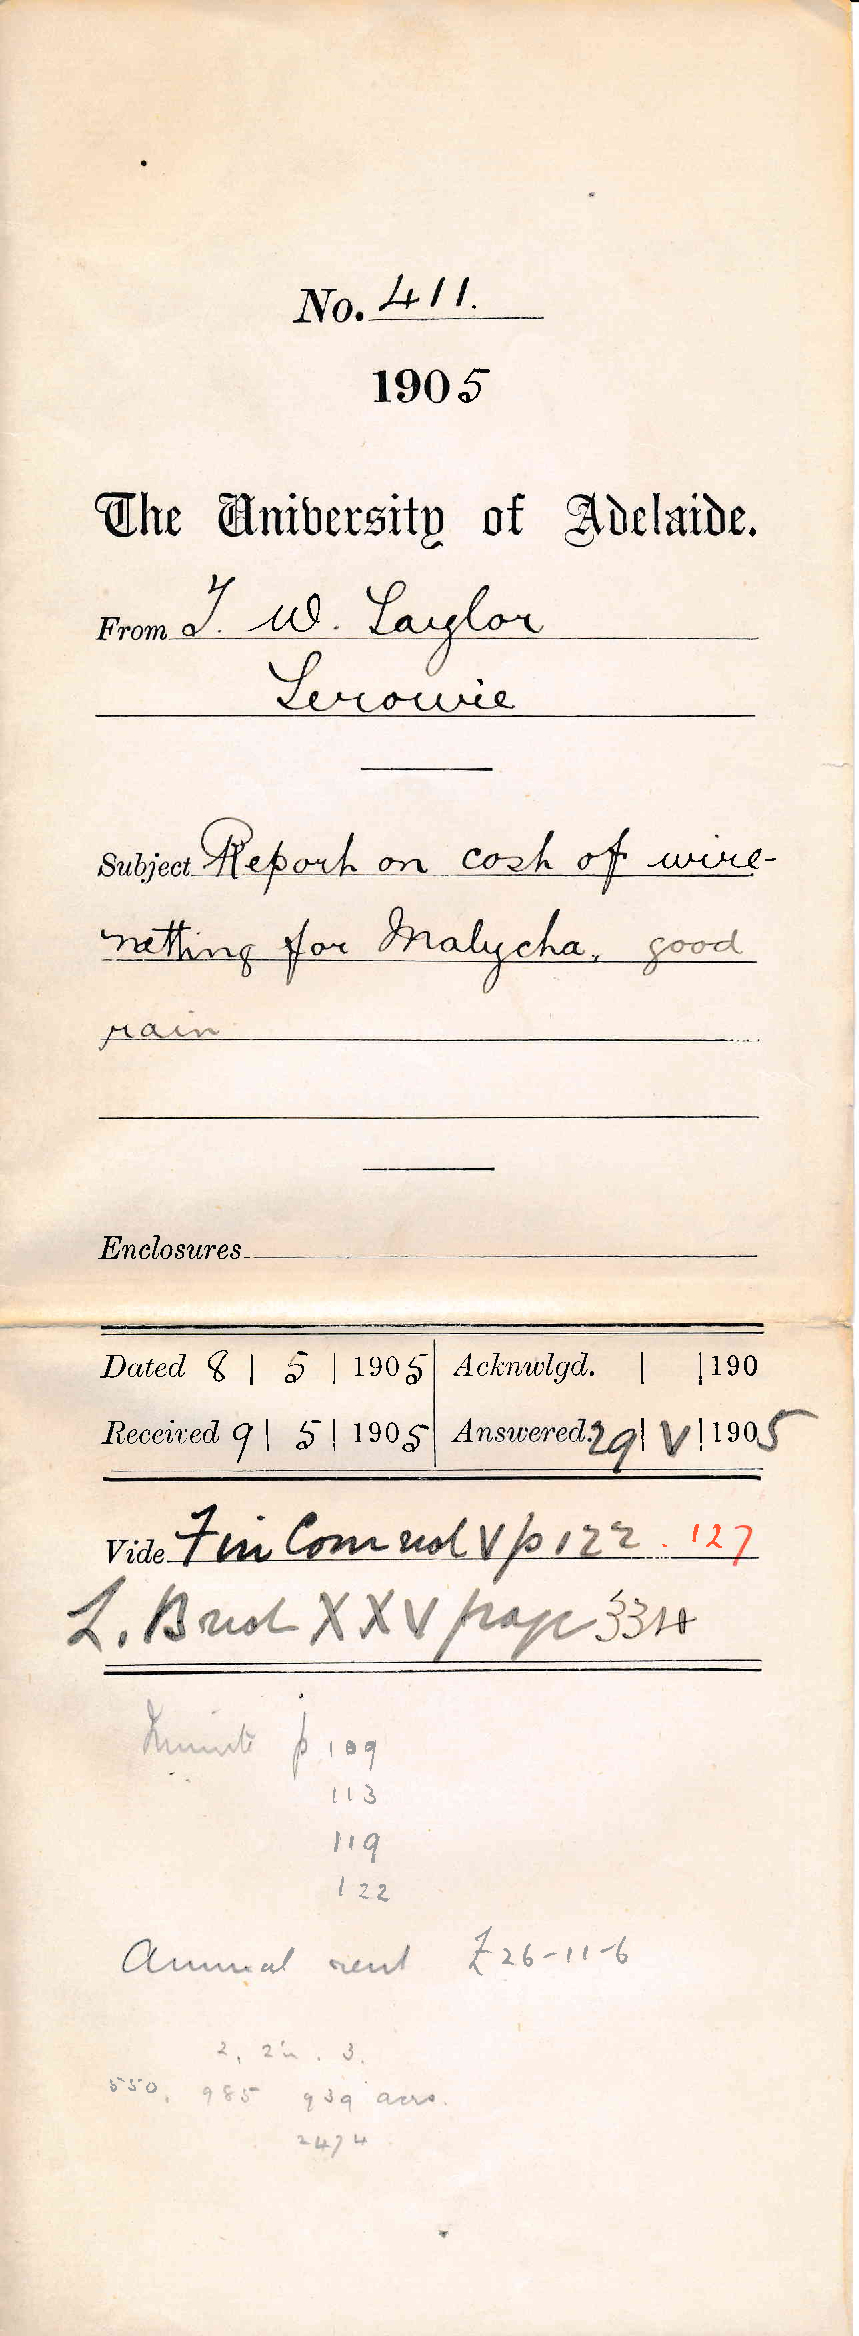 No. 411.
1905
The University of Adelaide.
From T. W. Taylor
Terowie
Subject Report on cost of wire-
netting for Malycha, good
rain
Enclosures
Dated 8 | 5 | 1905 Acknwlgd. | | 190
Received 9 | 5 | 1905 Answered. 29 | V | 1905
Vide Fin Com vol V p 122. 127
L. B vol XXV page 334
Minute p 109
113
119
122
Annual rent £26-11-6
2, 2a. 3.
550. 985 939 acres.
2474